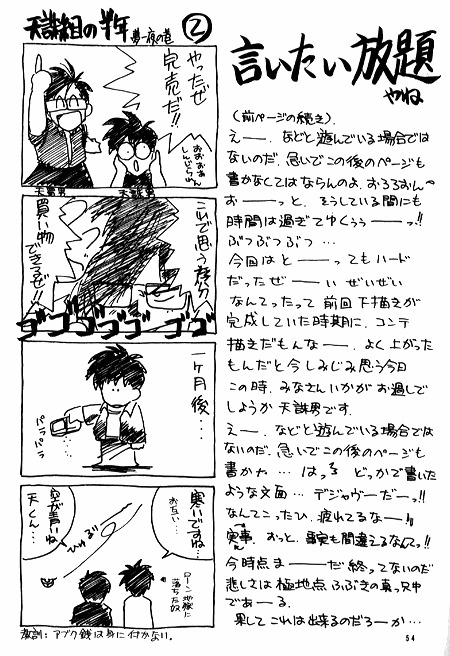 天誅組の半年
夢一夜の巻
②
やったぜ
完売だ!!
おおおぉ
しんじられん
天誅男
これで思う存分
買い物
できるぜ!!
ゴゴゴゴゴゴゴ
一ヶ月後…
パラパラ
寒いですね…
お互い…
ひゅるる
空が青いね
天くん…
ローン地獄に
落ちた奴
教訓:アブク銭は身に付かない。
言いたい放題
やね
(前ページの続き).
えー――. などと遊んでいる場合では
ないのだ. 急いでこの後のページも
書かなくてはならんのよ. おろろおん〜
おー――っと、 そうしている間にも
時間は過ぎてゆくぅぅー――っ!!
ぶつぶつぶつ…
今回はとー――ってもハード
だったぜー――ぃ ぜいぜい
なんてったって 前回下描きが
完成していた時期に、コンテ
描きだもんなー――. よく上がった
もんだと今しみじみ思う今日
この時. みなさんいかがお過しで
しょうか 天誅男です.
えー――. などと遊んでいる場合では
ないのだ. 急いでこの後のページも
書かね… はっ!? どっかで書いた
ような文面… デジャヴーだーっ!!
なんてこったひ. 疲れてるなー―!!
実事. おっと. 事実も間違えるなんてっ!!
今時点まー――だ終ってないのだ
悲しさは極地点ふぶきの真っ只中
であー――る.
果してこれは出来るのだろーか…
54